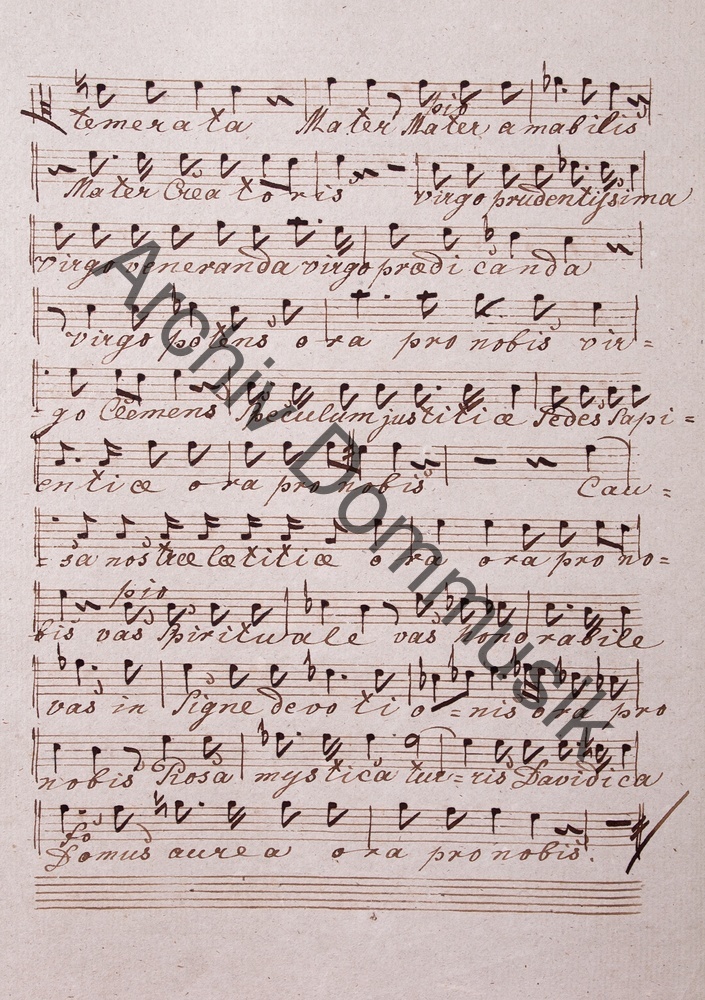 pio
temerata Mater Mater amabilis
Mater Creatoris virgo prudentissima
virgo veneranda virgo prædicanda
virgo potens ora pro nobis vir=
go Clemens Speculum justitiæ Sedes Sapi=
entiæ ora pro nobis Cau=
sa nostræ lætitiæ ora ora pro no=
pio
bis vas Spirituale vas honorabile
vas in Signe devotio=nis ora pro
nobis Rosa mystica tur=ris Davidica
fo
Domus aurea ora pro nobis.
Archiv Dommusik